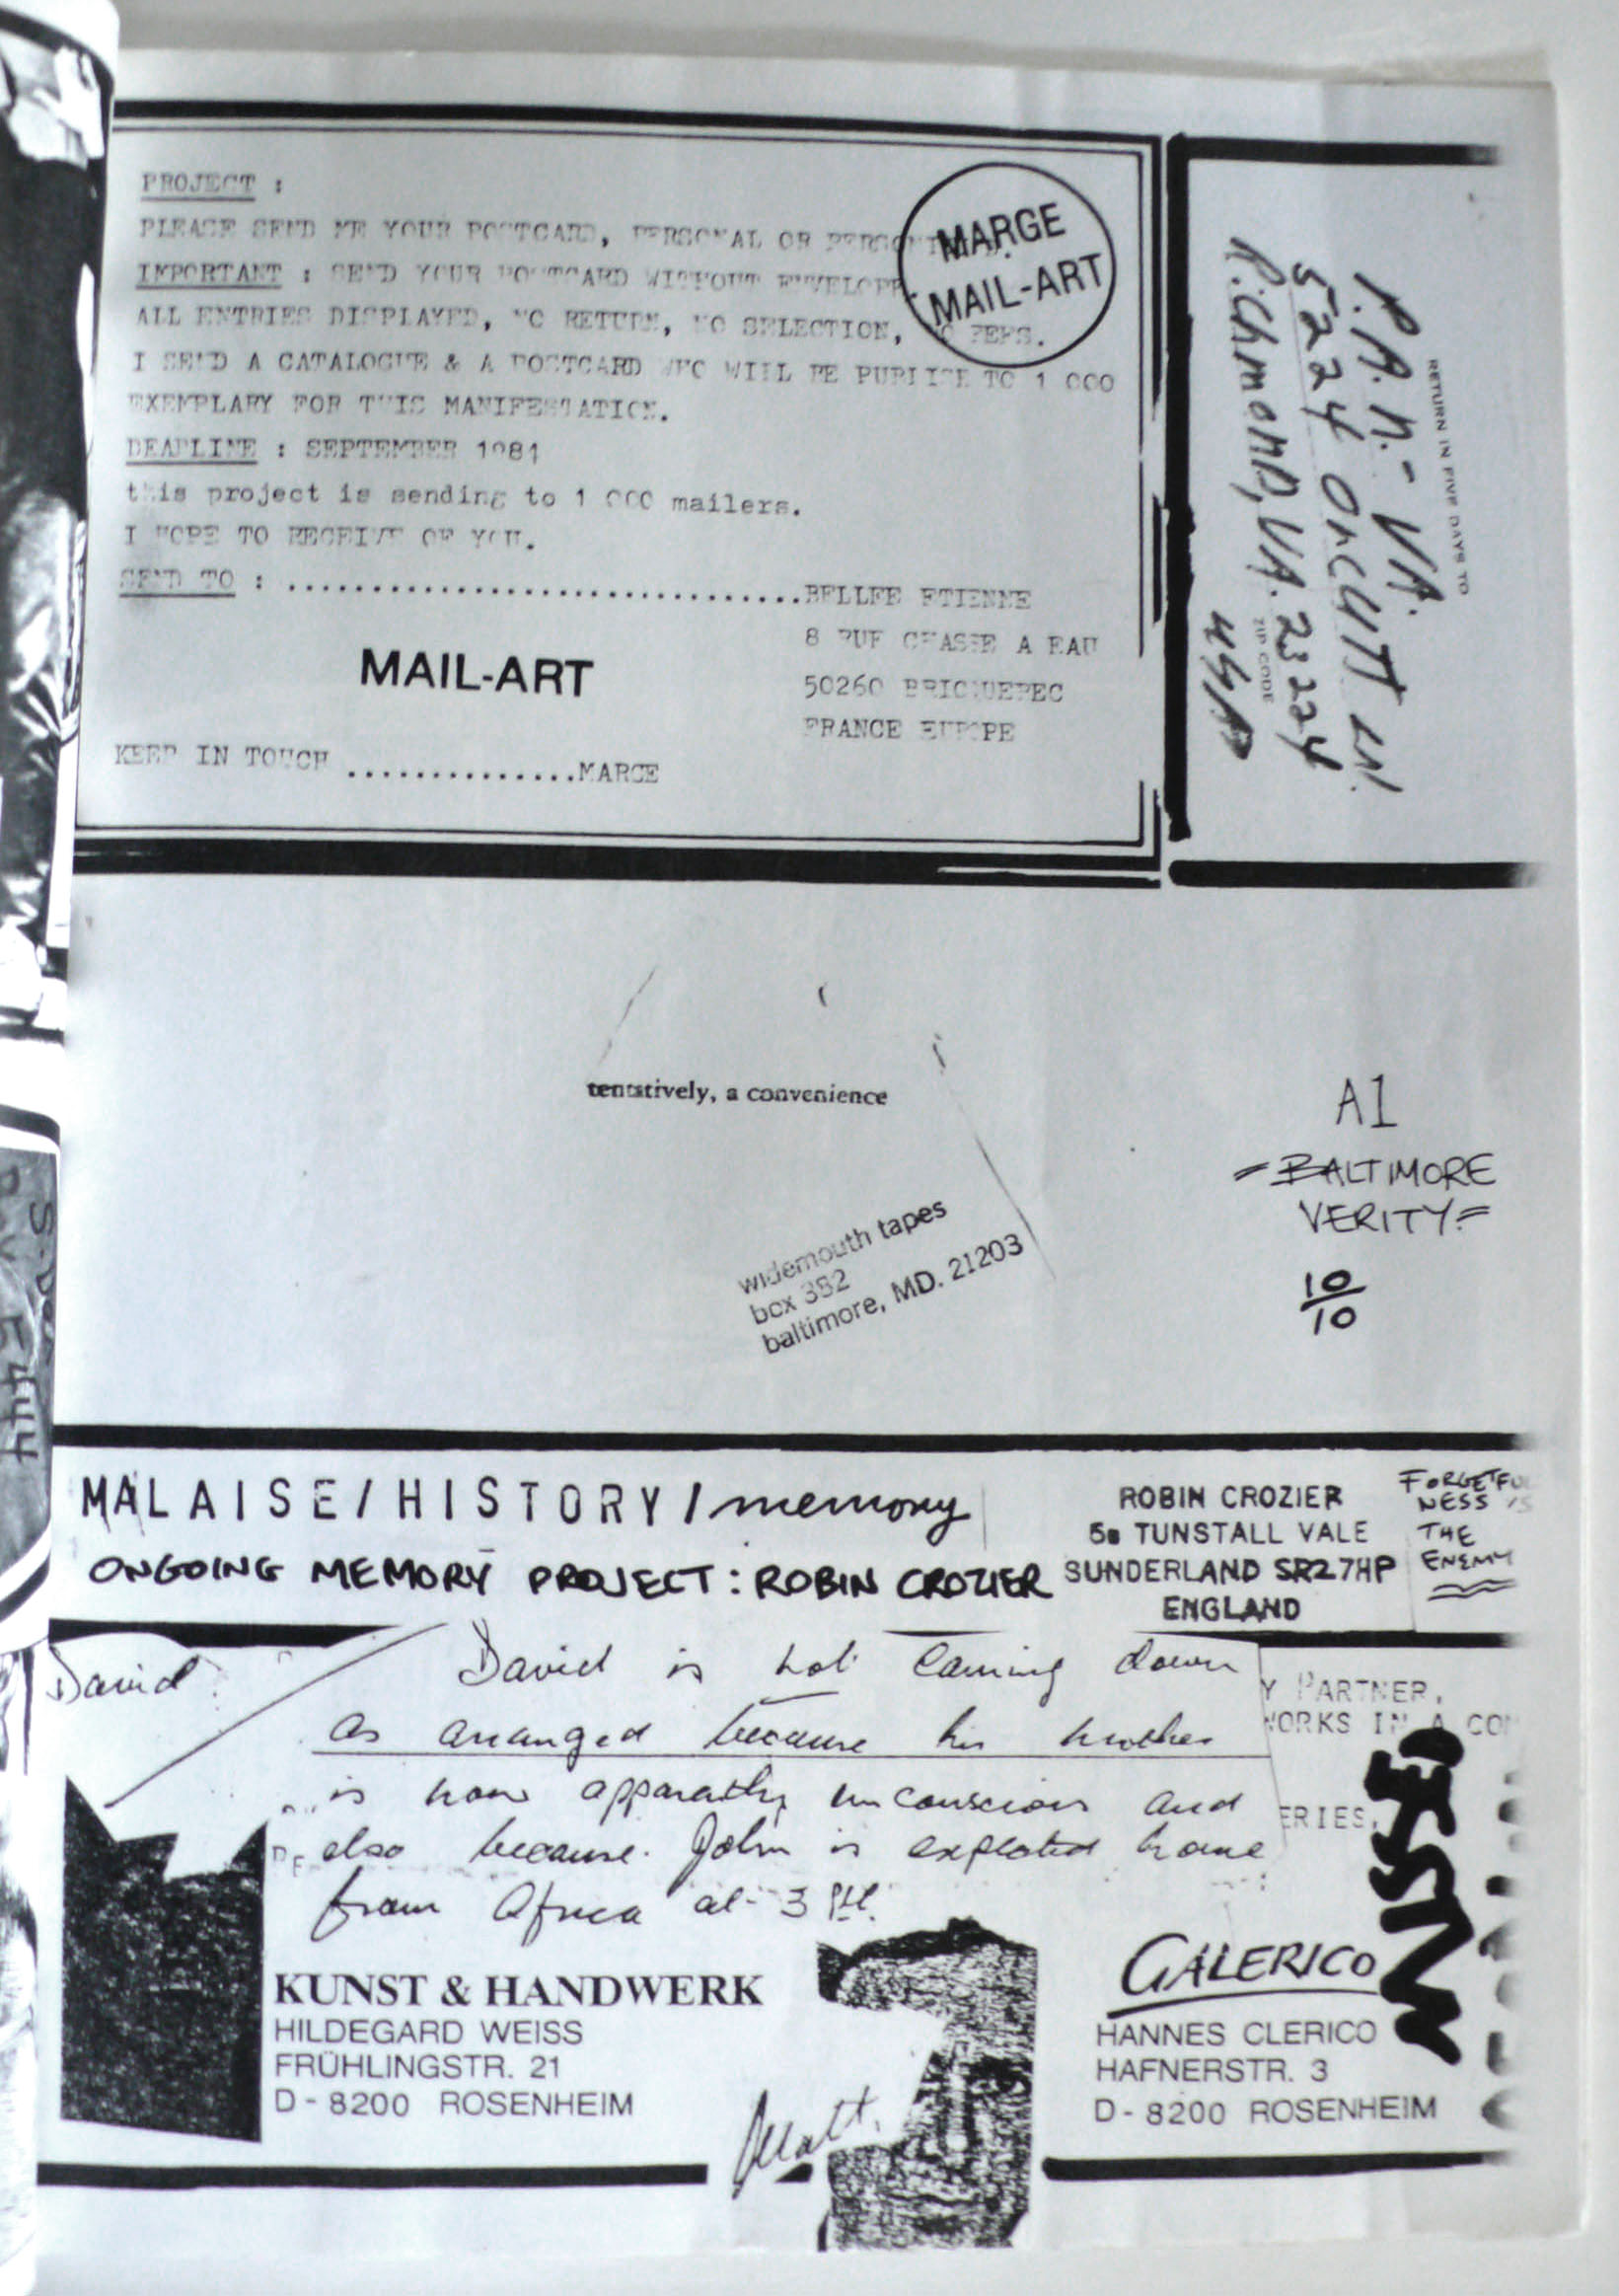 PROJECT :
PLEASE SEND ME YOUR POSTCARD, PERSONAL OR
IMPORTANT : SEND YOUR POSTCARD WITHOUT ENVELOPE
ALL ENTRIES DISPLAYED, NO RETURN, NO SELECTION, NO FEES.
I SEND A CATALOGUE & A POSTCARD WHO WILL BE PUBLISH TO 1 000
EXEMPLARY FOR THIS MANIFESTATION.
DEADLINE : SEPTEMBER 1981
this project is sending to 1 000 mailers.
I HOPE TO RECEIVE OF YOU.
SEND TO : ................................BELLEE ETIENNE
8 RUE CHASSE A EAU
50260 BRICQUEBEC
FRANCE EUROPE
MAIL-ART
KEEP IN TOUCH ...............MARGE
MARGE
MAIL-ART
RETURN IN FIVE DAYS TO
P.A.N.- VA.
5224 ORCUTT LN.
RiChmonD, VA. 23224
ZIP CODE
USA
tentatively, a convenience
widemouth tapes
box 382
baltimore, MD. 21203
A1
=BALTIMORE
VERITY=
10
10
MALAISE/HISTORY/memory
ONGOING MEMORY PROJECT: ROBIN CROZIER
ROBIN CROZIER
5B TUNSTALL VALE
SUNDERLAND SR2 7HP
ENGLAND
FORGETFUL
NESS IS
THE
ENEMY
David
David is not coming down
as arranged because his mother
is now apparently unconscious and
also because John is expected home
from Africa at 3
Y PARTNER,
WORKS IN A CO
ERIES,
KUNST & HANDWERK
HILDEGARD WEISS
FRÜHLINGSTR. 21
D - 8200 ROSENHEIM
Matt.
GALERICO
HANNES CLERICO
HAFNERSTR. 3
D - 8200 ROSENHEIM